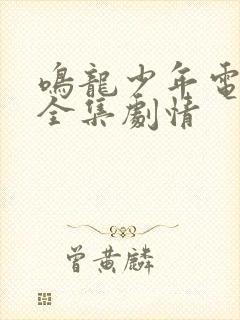 鳴龍少年電
全集劇情
曾黃麟